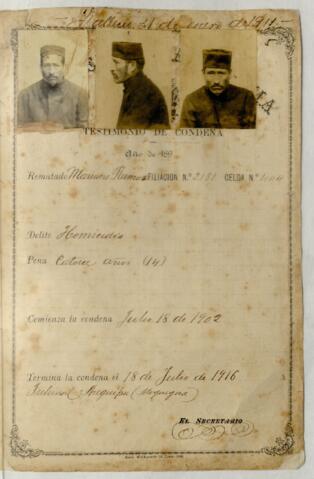 31 de enero de 1911
TESTIMONIO DE CONDENA
Año de 189
Rematado Mariano Ramos FILIACION N.° 2181 CELDA N.°
Delito Homicidio
Pena Catorce años (14)
Comienza la condena Julio 18 de 1902
Termina la condena el 18 de Julio de 1916
Tribunal Arequipa (Moquegua)
EL SECRETARIO